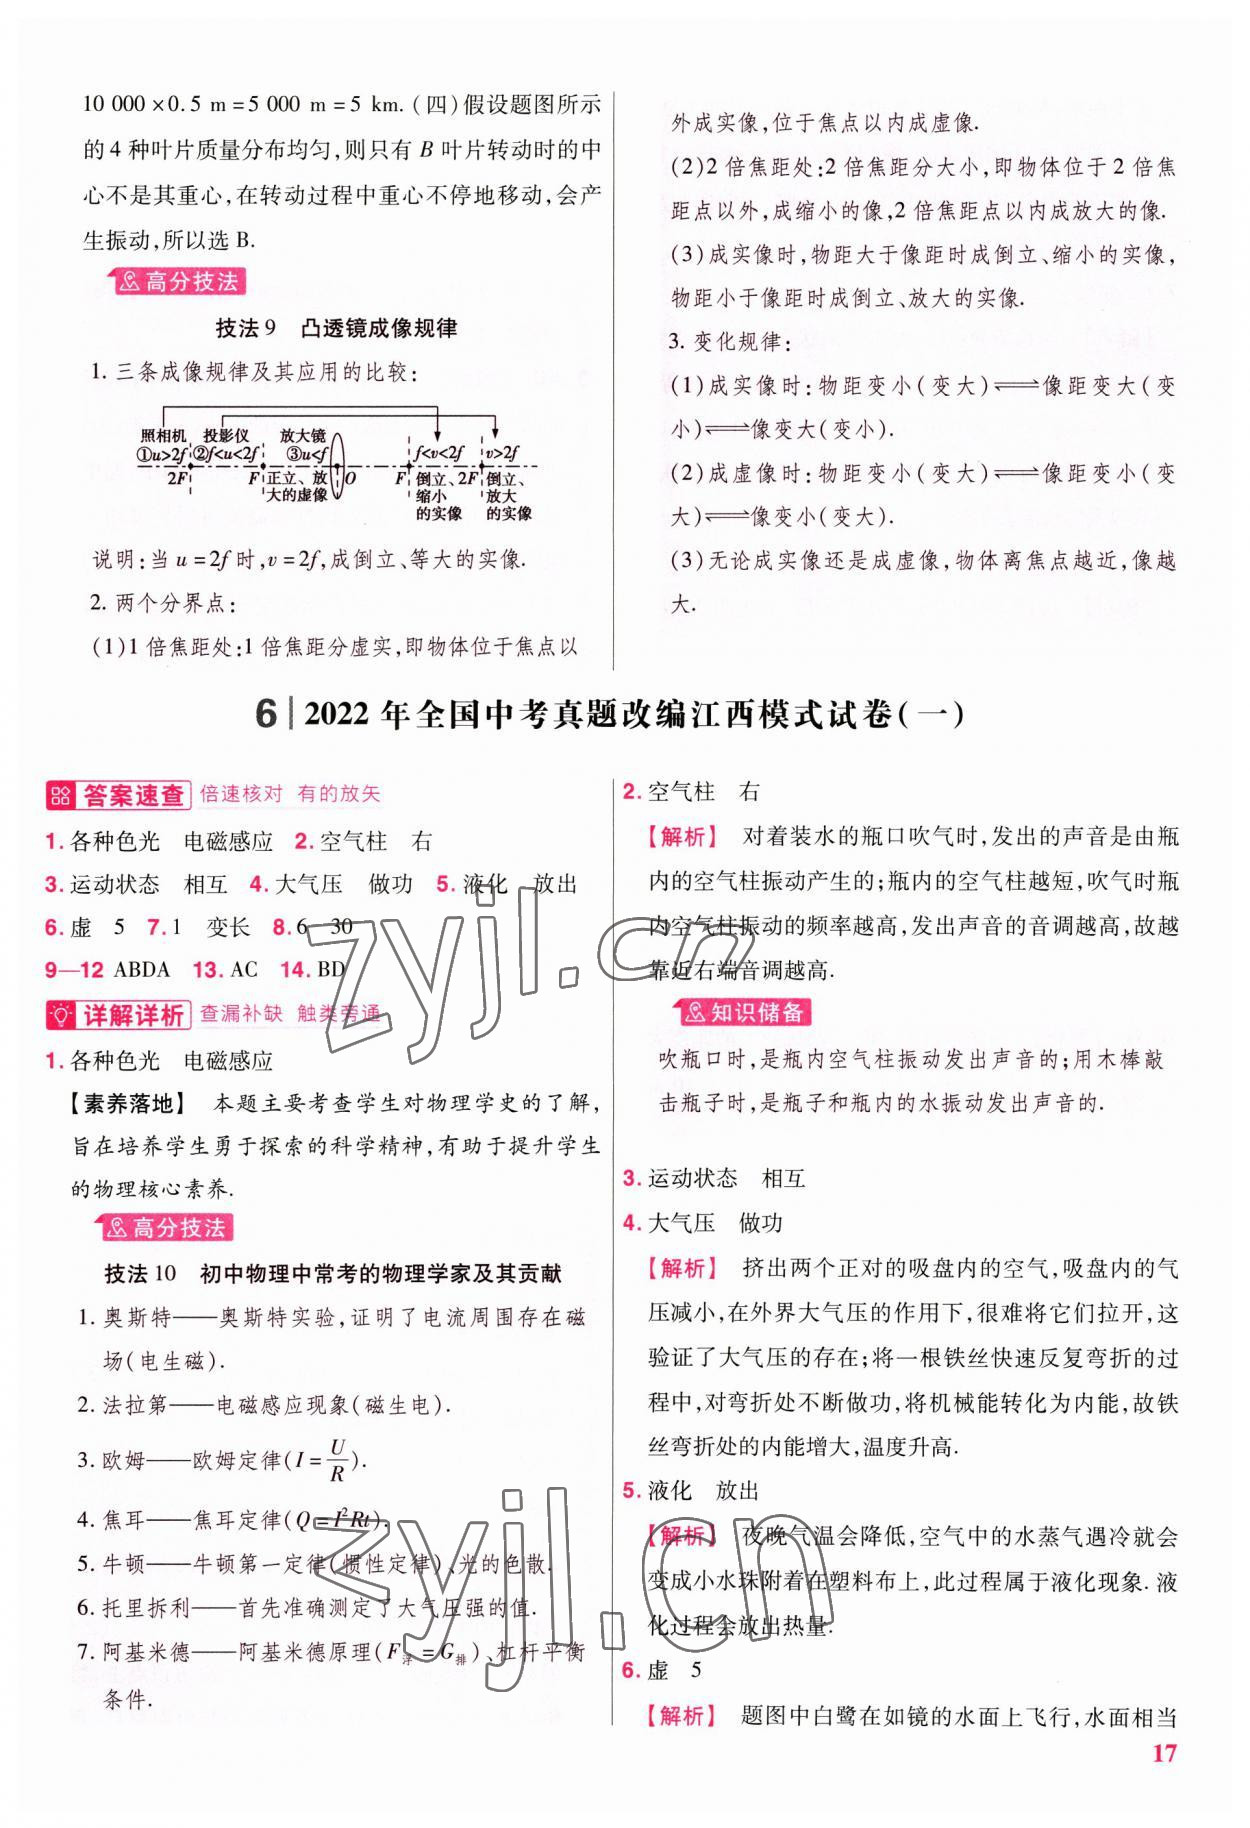 10 000×0.5 m=5 000 m=5 km.(四)假设题图所示
的4种叶片质量分布均匀,则只有B叶片转动时的中
心不是其重心,在转动过程中重心不停地移动,会产
生振动,所以选B.
高分技法
技法9 凸透镜成像规律
1. 三条成像规律及其应用的比较:
照相机 投影仪 放大镜
①u>2f ②f<u<2f ③u<f f<v<2f v>2f
2F F 正立、放大的虚像 O F 倒立、缩小的实像 2F 倒立、放大的实像
说明:当u=2f时,v=2f,成倒立、等大的实像.
2. 两个分界点:
(1)1倍焦距处:1倍焦距分虚实,即物体位于焦点以
外成实像,位于焦点以内成虚像.
(2)2倍焦距处:2倍焦距分大小,即物体位于2倍焦
距点以外,成缩小的像,2倍焦距点以内成放大的像.
(3)成实像时,物距大于像距时成倒立、缩小的实像,
物距小于像距时成倒立、放大的实像.
3. 变化规律:
(1)成实像时:物距变小(变大)⇌像距变大(变
小)⇌像变大(变小).
(2)成虚像时:物距变小(变大)⇌像距变小(变
大)⇌像变小(变大).
(3)无论成实像还是成虚像,物体离焦点越近,像越
大.
6 | 2022年全国中考真题改编江西模式试卷(一)
答案速查 倍速核对 有的放矢
1. 各种色光 电磁感应 2. 空气柱 右
3. 运动状态 相互 4. 大气压 做功 5. 液化 放出
6. 虚 5 7. 1 变长 8. 6 30
9—12 ABDA 13. AC 14. BD
详解详析 查漏补缺 触类旁通
1. 各种色光 电磁感应
【素养落地】 本题主要考查学生对物理学史的了解,
旨在培养学生勇于探索的科学精神,有助于提升学生
的物理核心素养.
高分技法
技法10 初中物理中常考的物理学家及其贡献
1. 奥斯特——奥斯特实验,证明了电流周围存在磁
场(电生磁).
2. 法拉第——电磁感应现象(磁生电).
3. 欧姆——欧姆定律(I=U/R).
4. 焦耳——焦耳定律(Q=I²Rt).
5. 牛顿——牛顿第一定律(惯性定律)、光的色散.
6. 托里拆利——首先准确测定了大气压强的值.
7. 阿基米德——阿基米德原理(F浮=G排)、杠杆平衡
条件.
2. 空气柱 右
【解析】 对着装水的瓶口吹气时,发出的声音是由瓶
内的空气柱振动产生的;瓶内的空气柱越短,吹气时瓶
内空气柱振动的频率越高,发出声音的音调越高,故越
靠近右端音调越高.
知识储备
吹瓶口时,是瓶内空气柱振动发出声音的;用木棒敲
击瓶子时,是瓶子和瓶内的水振动发出声音的.
3. 运动状态 相互
4. 大气压 做功
【解析】 挤出两个正对的吸盘内的空气,吸盘内的气
压减小,在外界大气压的作用下,很难将它们拉开,这
验证了大气压的存在;将一根铁丝快速反复弯折的过
程中,对弯折处不断做功,将机械能转化为内能,故铁
丝弯折处的内能增大,温度升高.
5. 液化 放出
【解析】 夜晚气温会降低,空气中的水蒸气遇冷就会
变成小水珠附着在塑料布上,此过程属于液化现象.液
化过程会放出热量.
6. 虚 5
【解析】 题图中白鹭在如镜的水面上飞行,水面相当
17
zyjl.cn
zyjl.cn